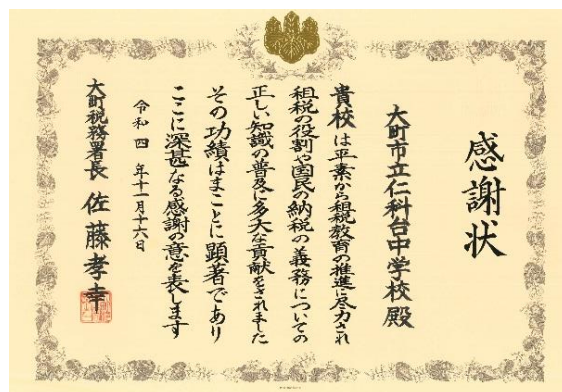 感謝状
大町市立仁科台中学校殿
貴校は平素から租税教育の推進に尽力され
租税の役割や国民の納税の義務についての
正しい知識の普及に多大な貢献をされました
その功績はまことに顕著であり
ここに深甚なる感謝の意を表します
令和四年十一月十六日
大町税務署長 佐藤孝幸